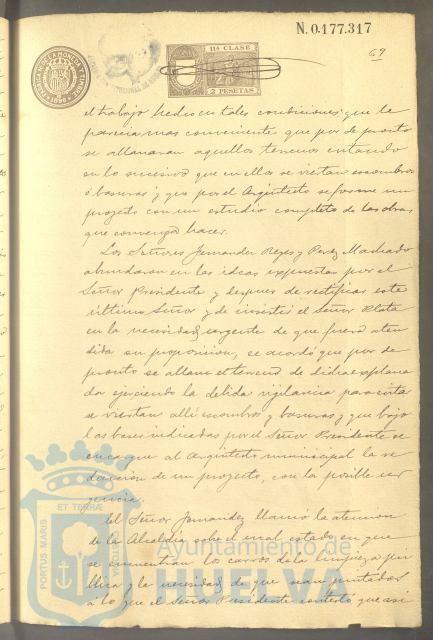 N. 0.177.317
11ª CLASE
2 PESETAS
69
el trabajo hecho en tales condiciones; que le
parecia mas conveniente que por de pronto
se allanaran aquellos terrenos evitando
en lo sucesivo que en ellos se viertan escombros
ó basuras; y que por el Arquitecto se forme un
proyecto con un estudio completo de las obras
que convenga hacer.
Los Señores Fernandez Reyes y Perez Machado
abundaron en las ideas expuestas por el
Señor Presidente y despues de rectificar este
último Señor y de insistir el Señor Plata
en la necesidad urgente de que fuera aten
dida su proposicion, se acordó que por de
pronto se allane el terreno de dicha explana
da ejerciendo la debida vigilancia para evitar
se viertan allí escombros y basuras y que bajo
las bases indicadas por el Señor Presidente se
encargue al Arquitecto municipal la re
daccion de un proyecto, con la posible ur
gencia.
El Señor Fernandez llamó la atencion
de la Alcaldia sobre el mal estado en que
se encuentran los carros de la limpieza pú
blica y la necesidad de que sean pintados
á lo que el Señor Presidente contestó que asi
PORTUS MARIS ET TERRÆ
Ayuntamiento de
HUELVA